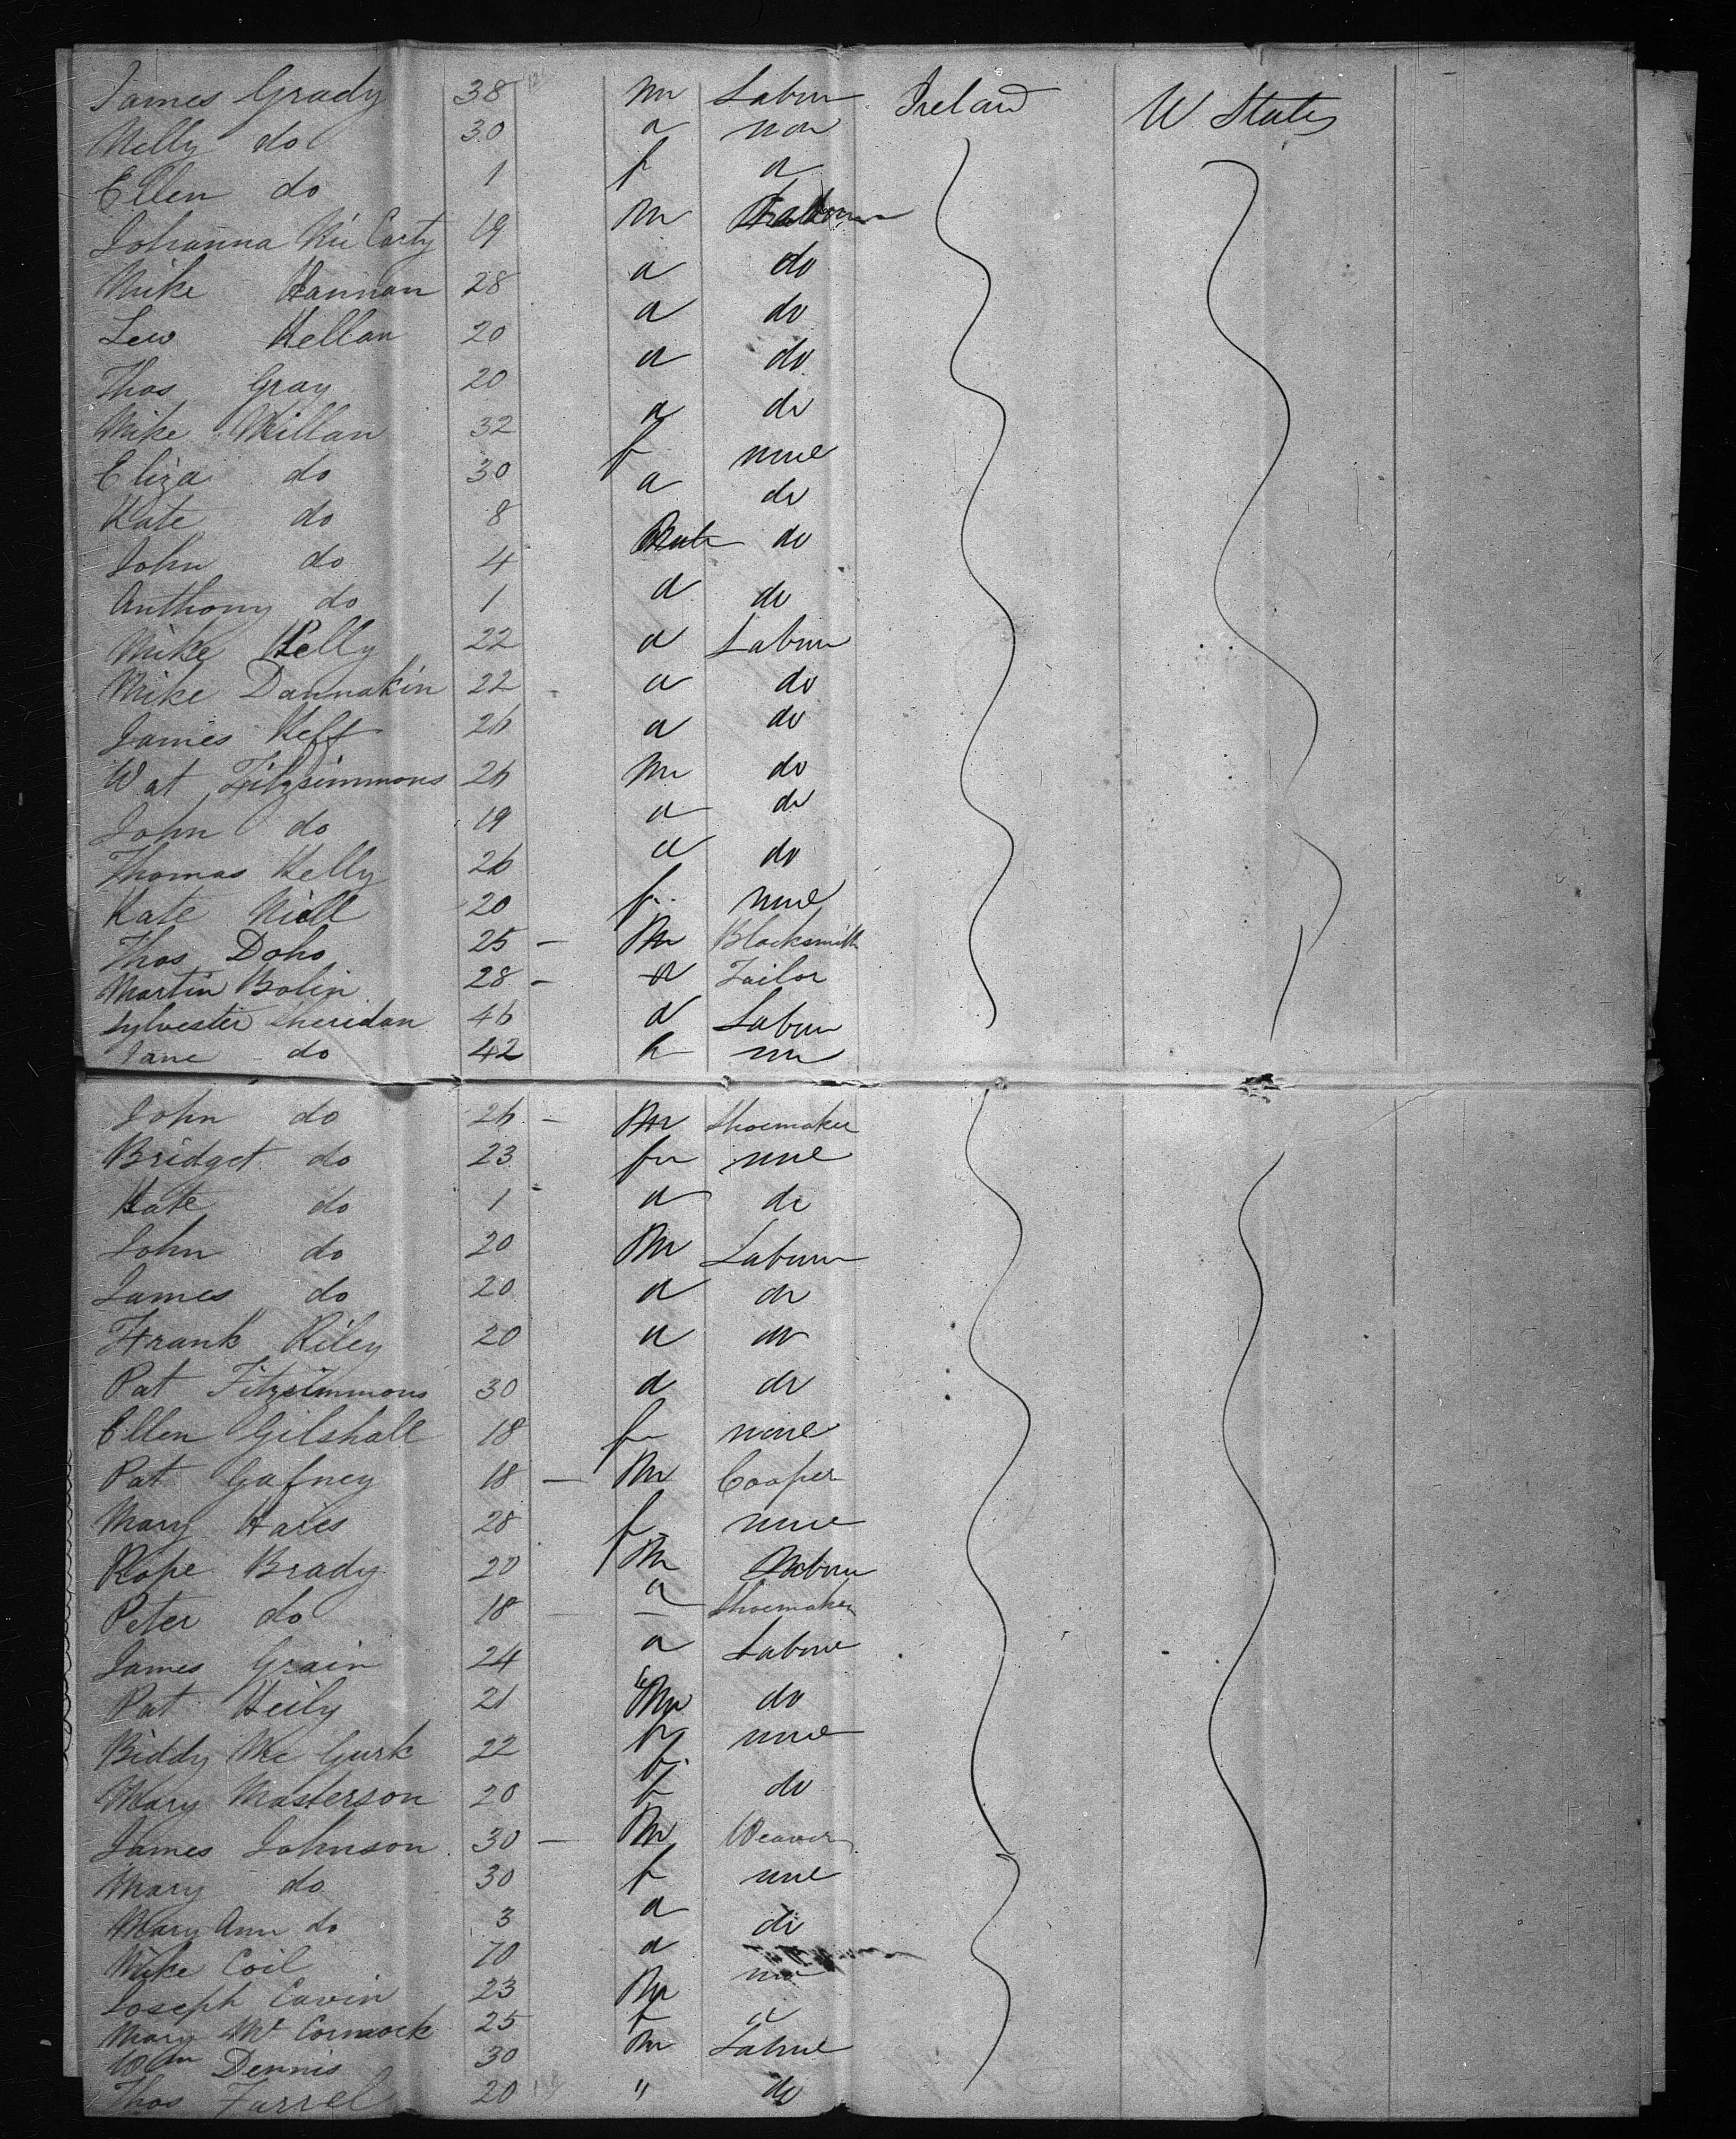 James Grady 38 m Labou Ireland U States
Nelly do 30 a non
Ellen do 1 f a
Johanna Mc Carty 19 m
Mike Hannan 28 a do
Lew Kellan 20 a do
Thos Gray 20 a do
Mike Killan 32 a do
Eliza do 30 f none
Kate do 8 a do
John do 4 do
Anthony do 1 a do
Mike Kelly 22 a Labour
Mike Dannakin 22 a do
James Keff 26 a do
Wat Fitzsimmons 26 m do
John do 19 a do
Thomas Kelly 26 a do
Kate Niell 20 f none
Thos Doho 25 – m Blacksmith
Martin Bolin 28 – a Tailor
Sylvester Sheridan 46 a Labour
Jane do 42 f
John do 26 – m Shoemaker
Bridget do 23 f none
Kate do 1 a do
John do 20 m Labour
James do 20 a do
Frank Riley 20 a do
Pat Fitzsimmons 30 a do
Ellen Gilshall 18 f none
Pat Gafney 18 – m Cooper
Mary Hares 28 f none
Rope Brady 20 m Labour
Peter do 18 – a Shoemaker
James Grain 24 a Labour
Pat Heily 21 m do
Biddy Mc Gurk 22 f none
Mary Masterson 20 f do
James Johnson 30 – m Weaver
Mary do 30 f none
Mary Ann do 3 a do
Mike Coil 70 a
Joseph Cavin 23 m
Mary Mc Cormock 25 f
Wm Dennis 30 m Labour
Thos Farrel 20 " do